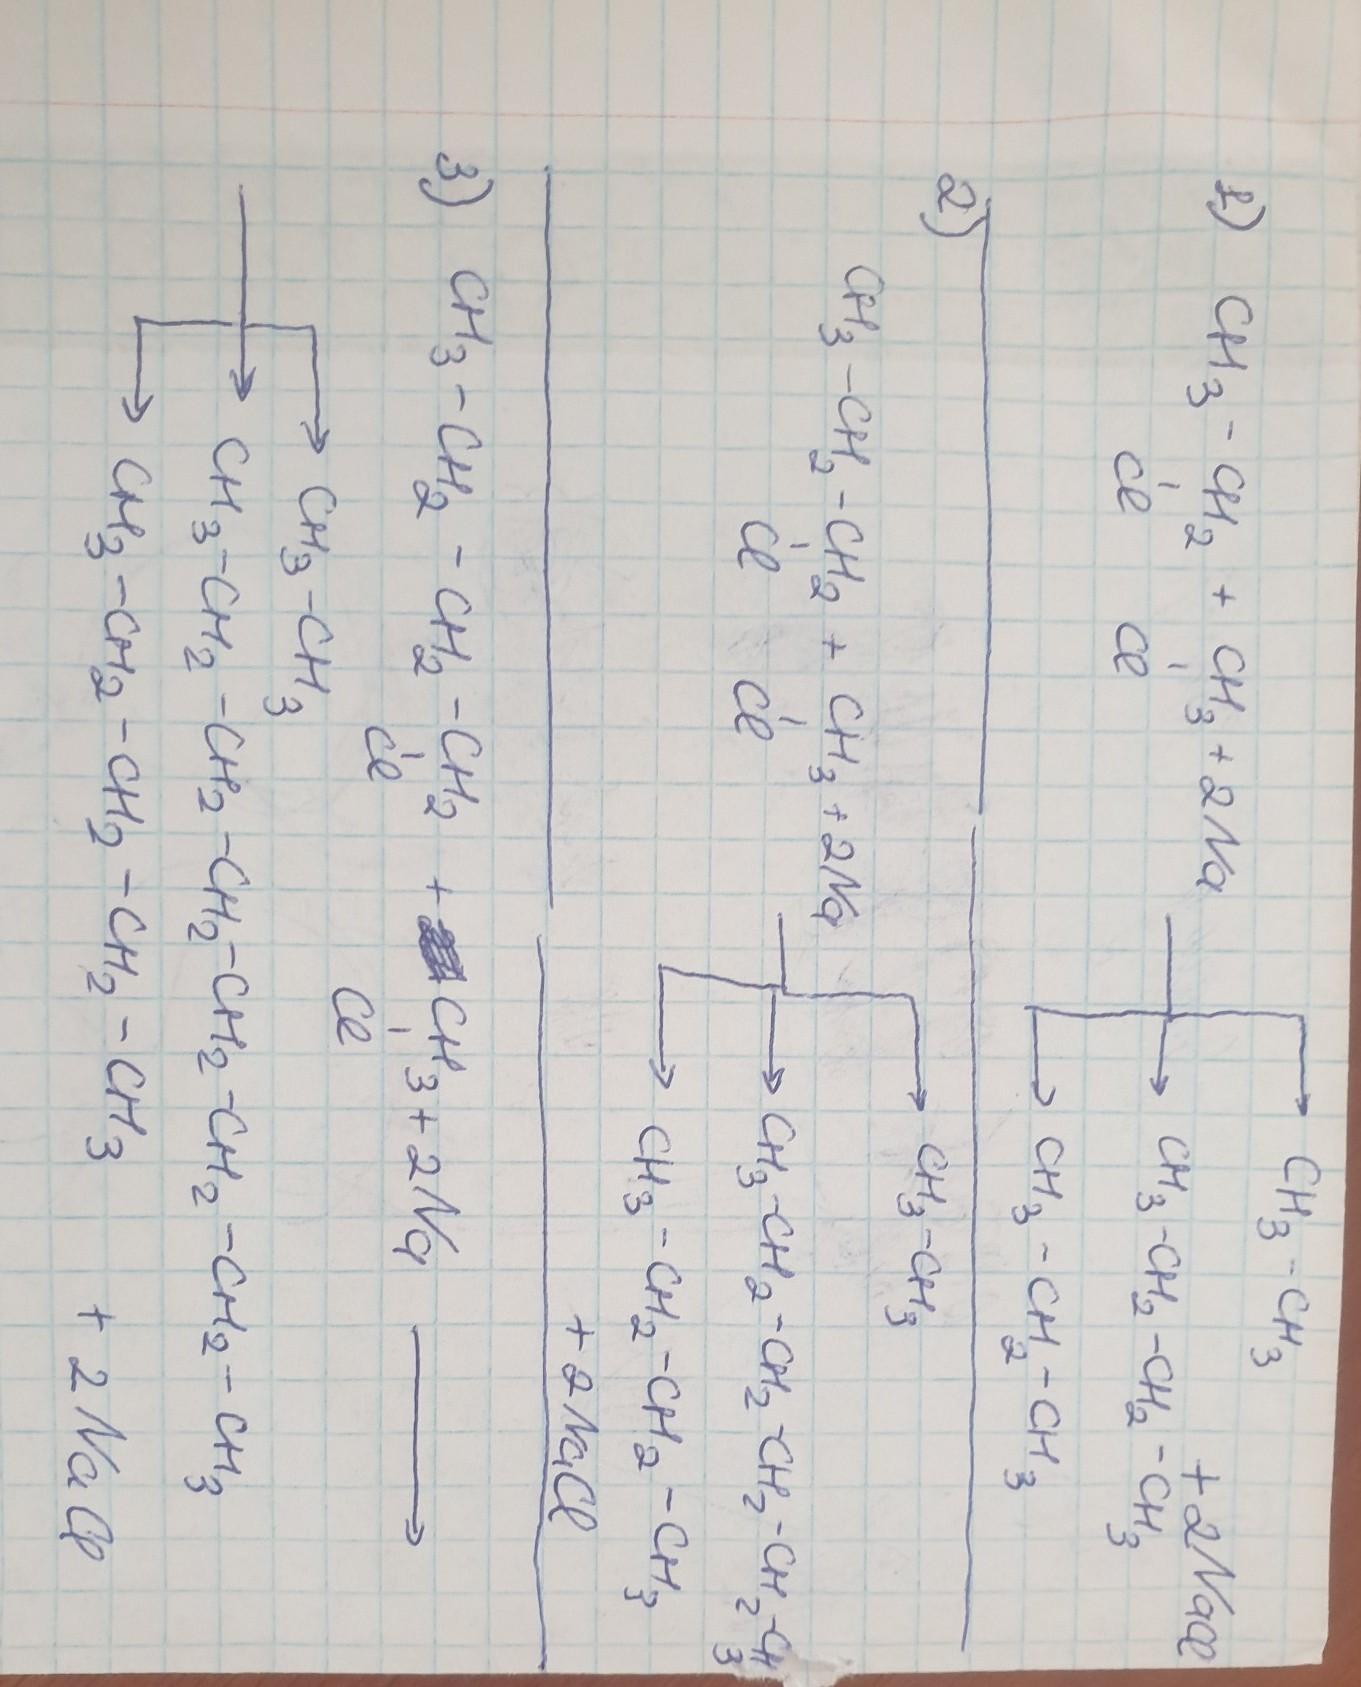 CH3-CH3
1) CH3-CH2 + CH3 + 2Na → CH3-CH2-CH2-CH3 + 2NaCl
Cl Cl
CH3-CH2-CH3
2)
CH3-CH3
CH3-CH2-CH2 + CH3 + 2Na → CH3-CH2-CH2-CH2-CH2-CH3
Cl Cl
CH3-CH2-CH2-CH3
+ 2NaCl
3) CH3-CH2-CH2-CH2 + CH3 + 2Na →
Cl Cl
CH3-CH3
→ CH3-CH2-CH2-CH2-CH2-CH2-CH2-CH3
CH3-CH2-CH2-CH2-CH3 + 2NaCl